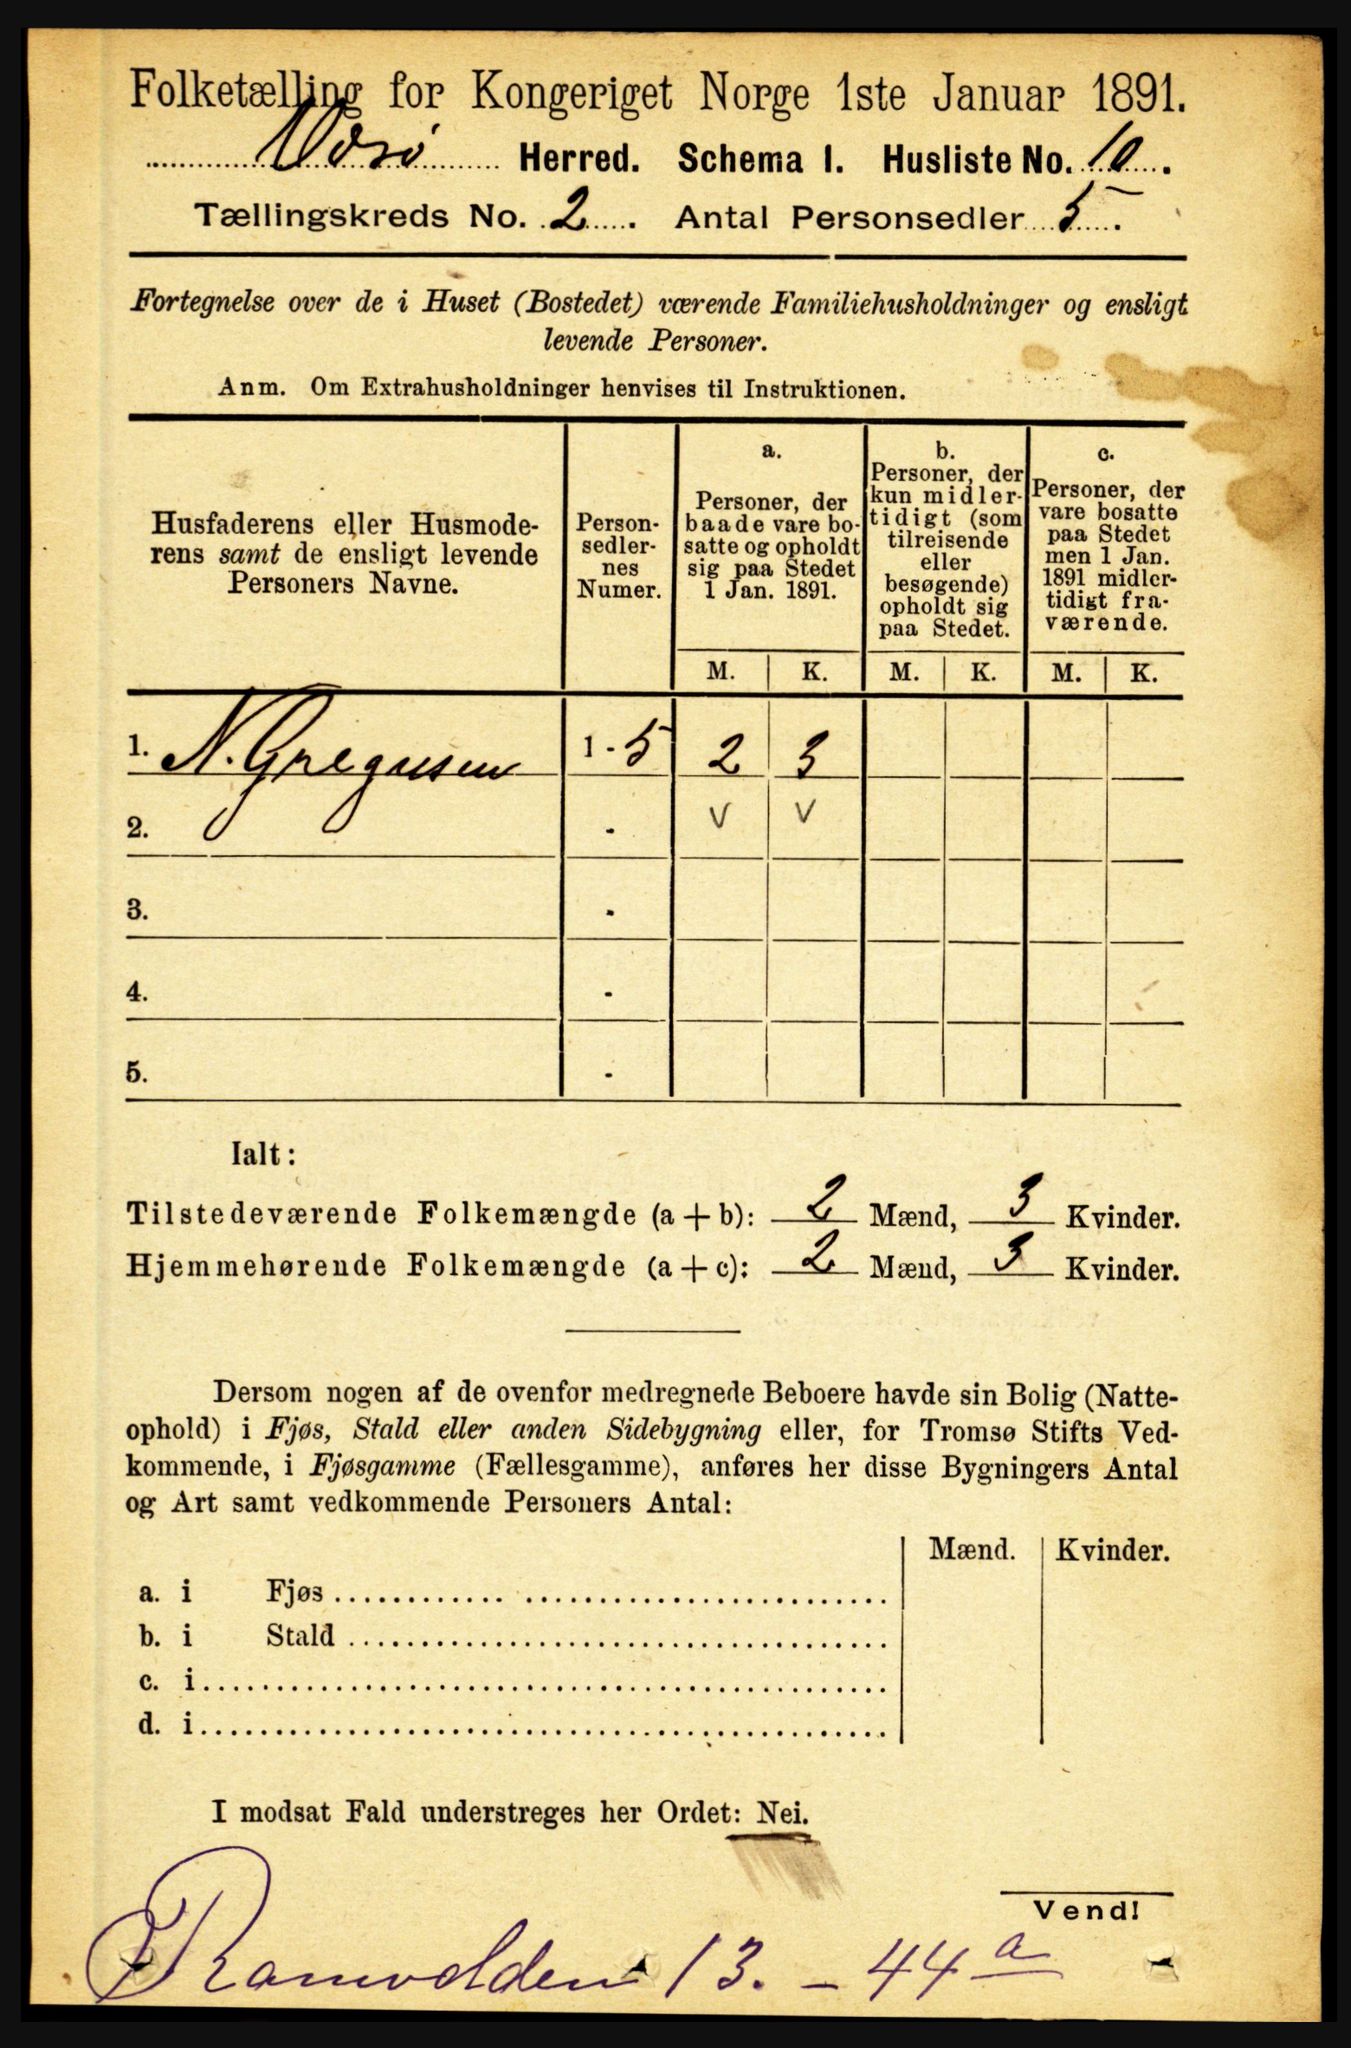 Folketælling for Kongeriget Norge 1ste Januar 1891.
Værø Herred. Schema 1. Husliste No. 10.
Tællingskreds No. 2. Antal Personsedler 5.
Fortegnelse over de i Huset (Bostedet) værende Familiehusholdninger og ensligt
levende Personer.
Anm. Om Extrahusholdninger henvises til Instruktionen.
Husfaderens eller Husmode-
rens samt de ensligt levende
Personers Navne.
Person-
sedler-
nes
Numer.
a.
Personer, der
baade vare bo-
satte og opholdt
sig paa Stedet
1 Jan. 1891.
b.
Personer, der
kun midler-
tidigt (som
tilreisende
eller
besøgende)
opholdt sig
paa Stedet.
c.
Personer, der
vare bosatte
paa Stedet
men 1 Jan.
1891 midler-
tidigt fra-
værende.
M. K. M. K. M. K.
1. N. Gregusen 1 - 5 2 3
2. - v v
3. -
4. -
5. -
Ialt:
Tilstedeværende Folkemængde (a + b): 2 Mænd, 3 Kvinder.
Hjemmehørende Folkemængde (a + c): 2 Mænd, 3 Kvinder.
Dersom nogen af de ovenfor medregnede Beboere havde sin Bolig (Natte-
ophold) i Fjøs, Stald eller anden Sidebygning eller, for Tromsø Stifts Ved-
kommende, i Fjøsgamme (Fællesgamme), anføres her disse Bygningers Antal
og Art samt vedkommende Personers Antal:
Mænd. Kvinder.
a. i Fjøs
b. i Stald
c. i
d. i
I modsat Fald understreges her Ordet: Nei.
Vend!
13. - 44 a